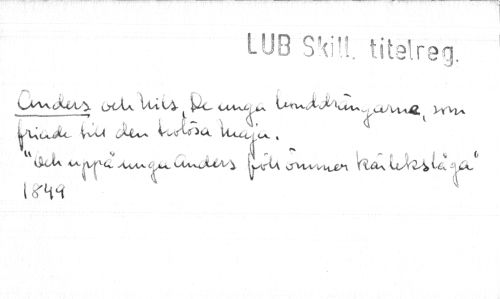 LUB Skill. titelreg.
Anders och Nils, De unga bonddrängarne, som
friade till den trolösa Maja.
"Och uppå unga Anders föll ömmer kärlekslåga"
1849